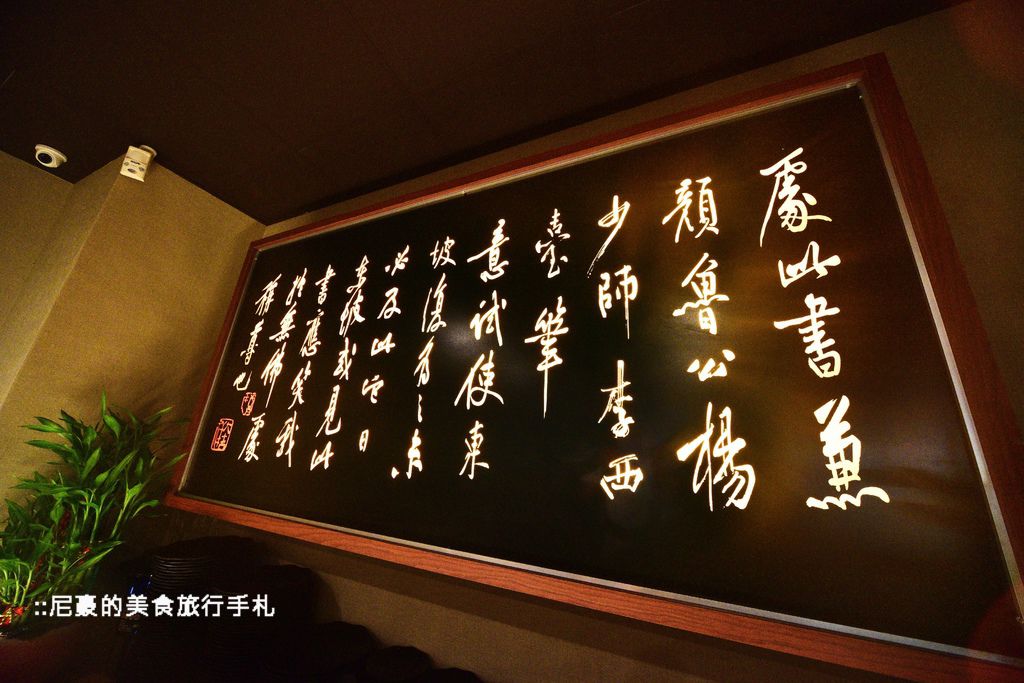 處此書兼
顏魯公楊
少師李西
臺筆
意試使東
坡復為之未
必及此它日
東坡或見此
書應笑我
於無佛處
稱尊也
::尼豪的美食旅行手札